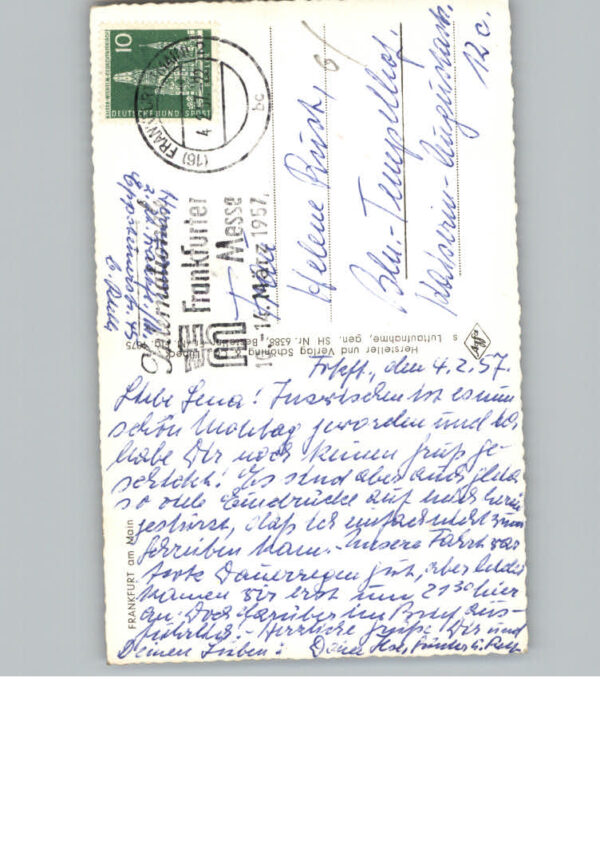 10
DEUTSCHE BUNDESPOST
(16) FRANKFURT
bc
Internationale
Frankfurter
Messe
10.-14. März 1957
Helene Busch,
Bln.-Tempelhof,
Kaiserin-Augustastr.
12c.
Hersteller und Verlag Schöning & Co., Lübeck
s Luftaufnahme, gen. SH Nr. 6388,
Agfa
FRANKFURT am Main
Frkft., den 4.2.57.
Liebe Lena! Inzwischen ist es nun
schon Montag geworden und ich
habe Dir noch keinen Gruß ge-
schickt! Es sind aber auch gleich
so viele Eindrücke auf mich herein
gestürzt, daß ich einfach nicht zum
Schreiben kam. - Unsere Fahrt war
trotz Dauerregen gut, aber leider
kamen wir erst um 21 30 hier
an. Doch darüber im Brief aus-
führlich. - Herzliche Grüße Dir und
Deinen Lieben! Deine